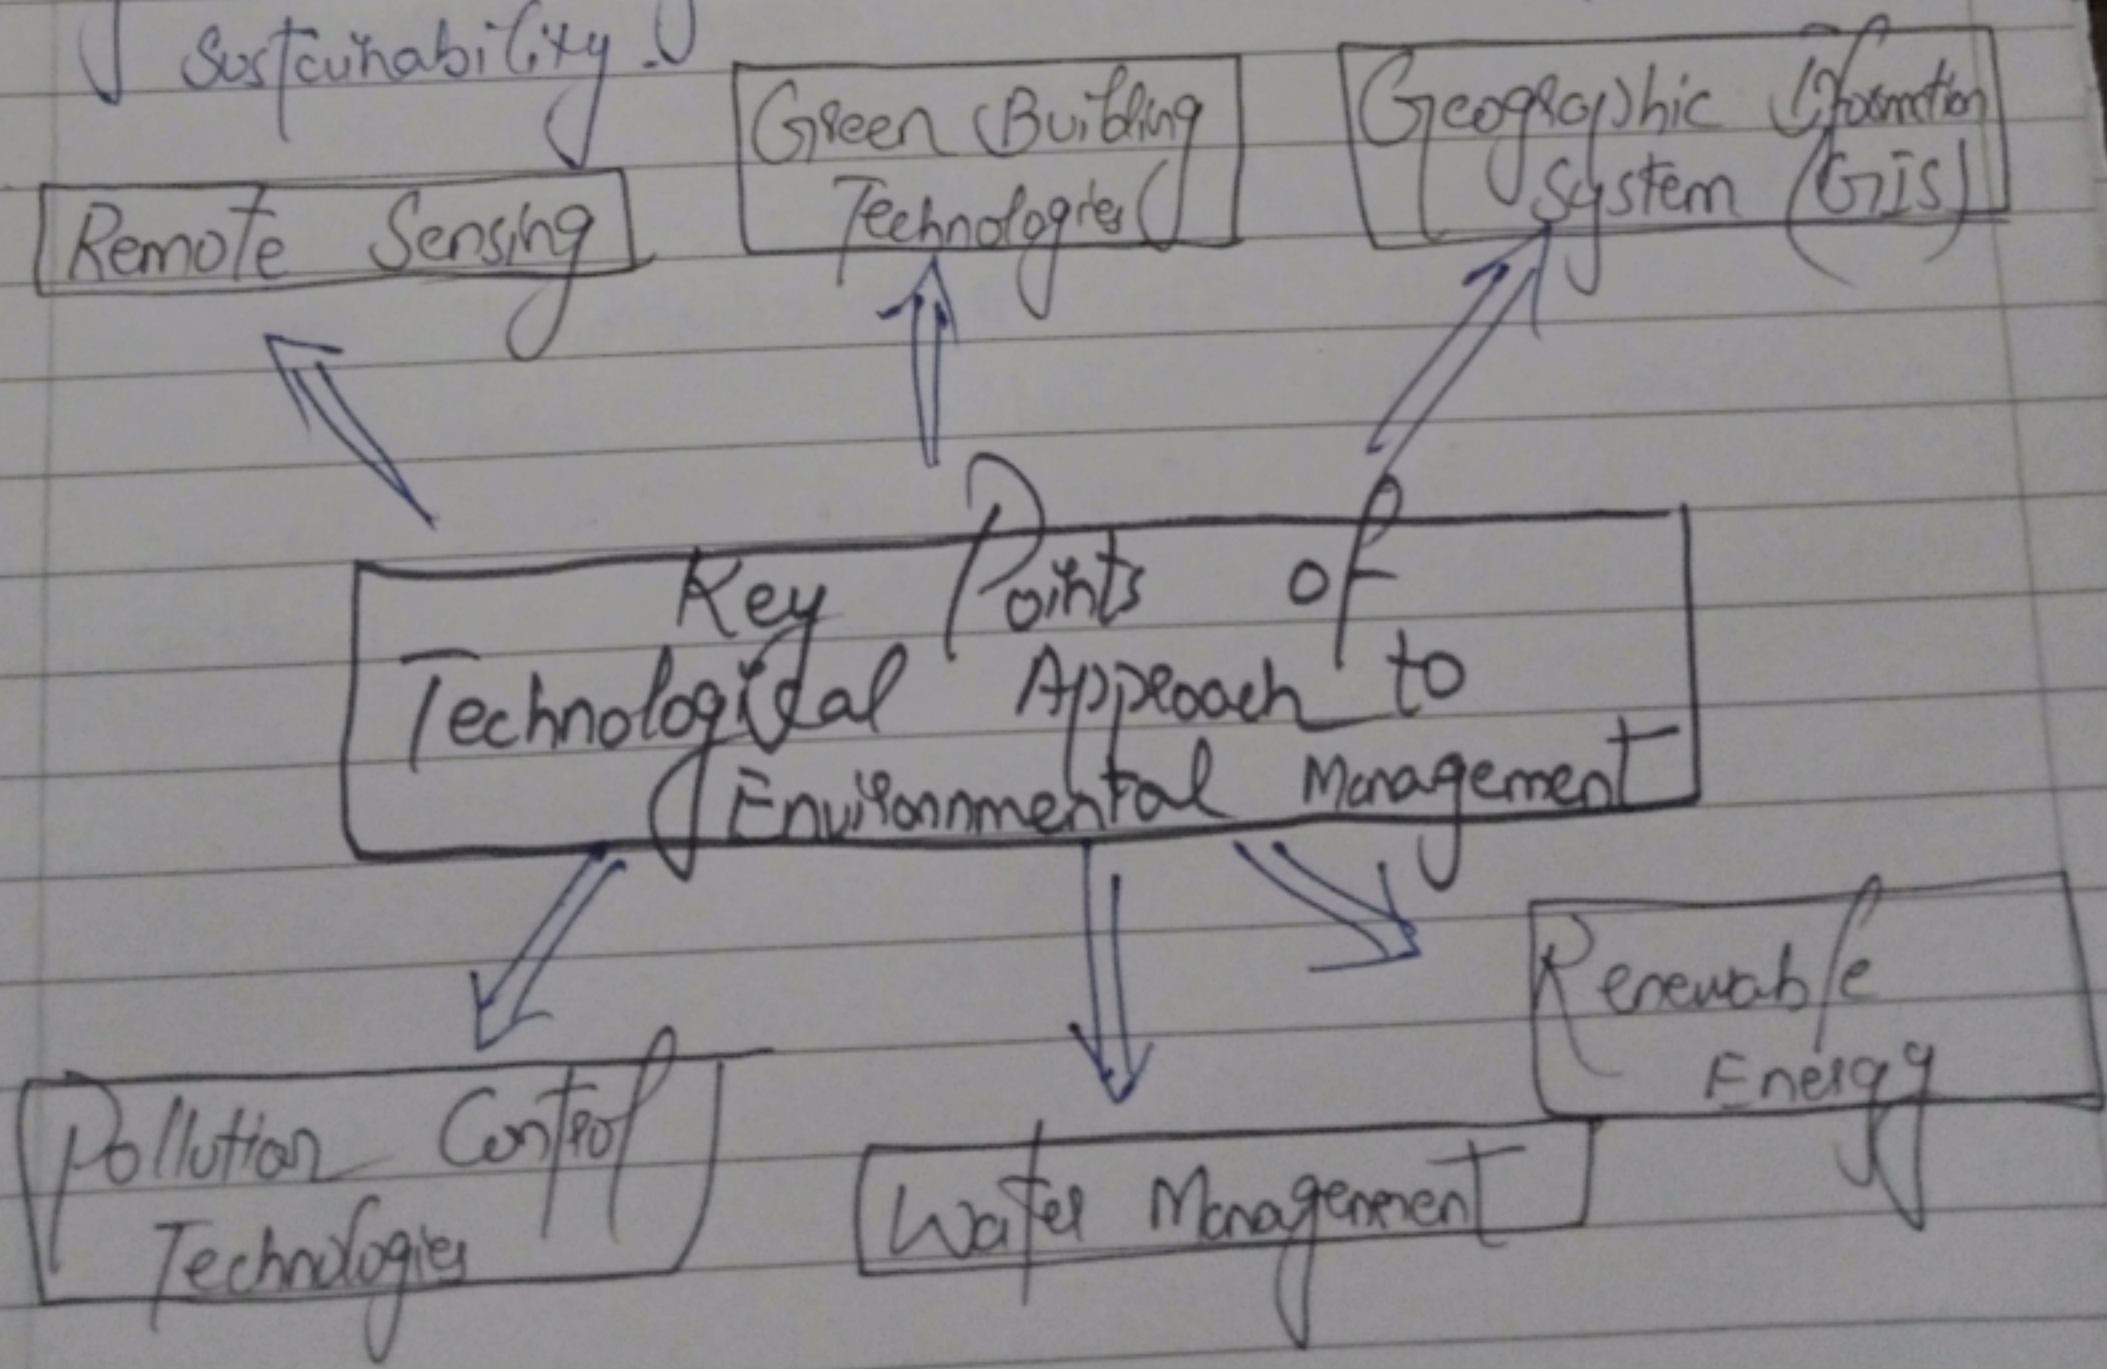 Sustainability.
Remote Sensing
Green Building
Technologies
Geographic Information
System (GIS)
Key Points of
Technological Approach to
Environmental Management
Pollution Control
Technologies
Water Management
Renewable
Energy